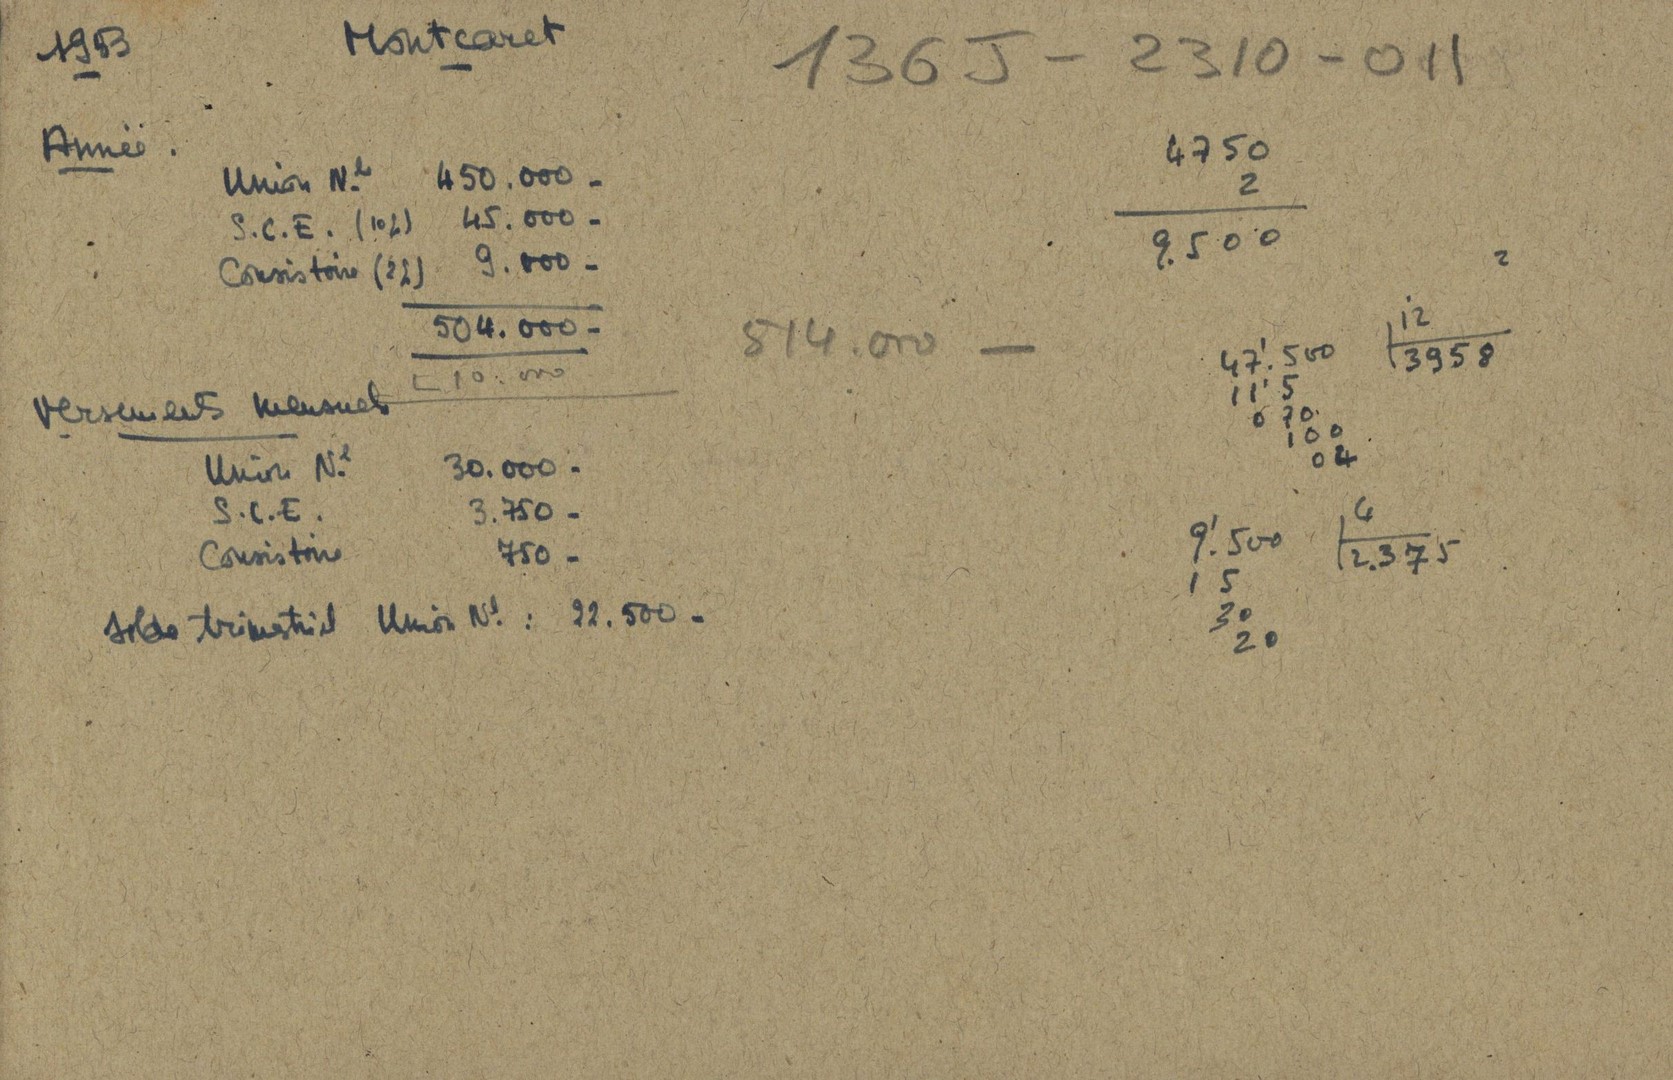 1953 Montcaret 136J - 2310 - 011
Année.
Union N.le 450.000 -
S.C.E. (10%) 45.000 -
Consistoire (2%) 9.000 -
504.000 -
10.000
514.000 —
Versements mensuels
Union N.le 30.000 -
S.C.E. 3.750 -
Consistoire 750 -
Solde trimestriel Union Nl. : 22.500 -
4750
2
9.500
2
47'.500 12
11'5 3958
070
100
04
9'.500 4
15 2.375
30
20